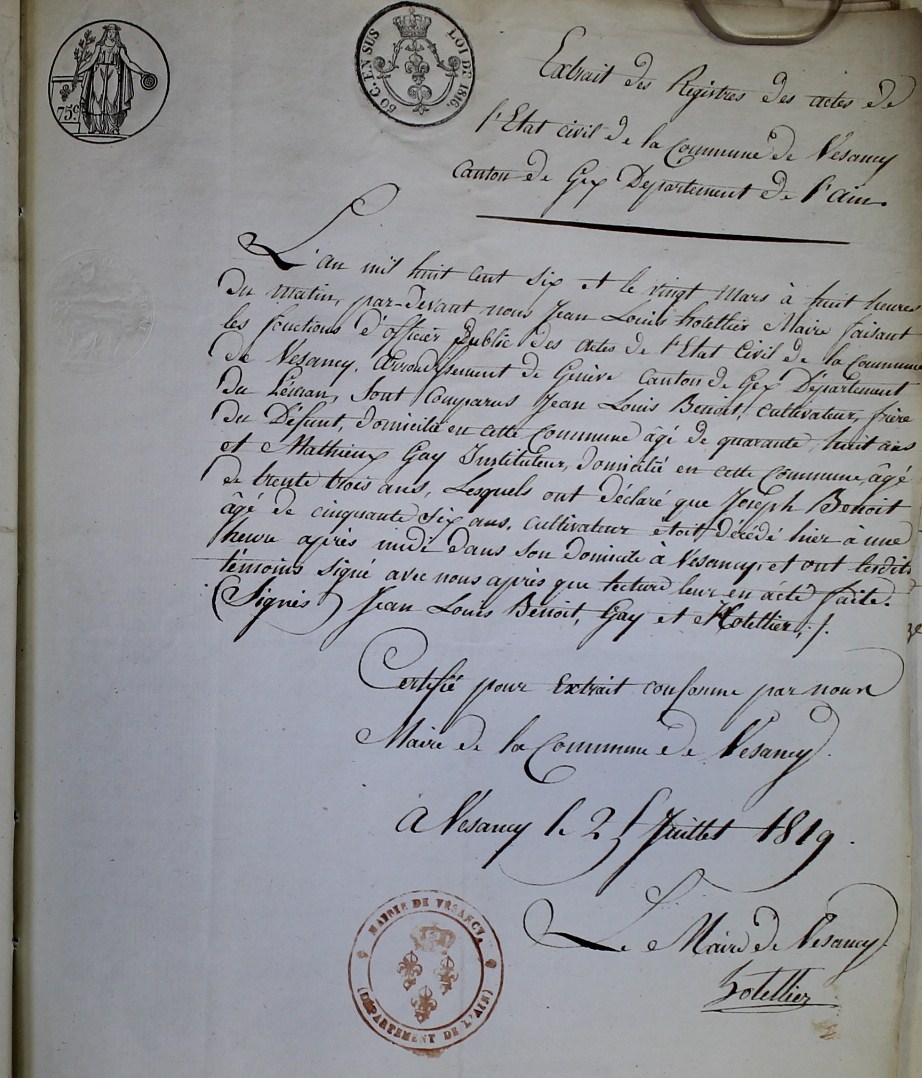 75c.
50 C. EN SUS LOI DE 1816.
Extrait des Registres des actes de
l'Etat civil de la Commune de Vésancy
Canton de Gex Département de l'ain.
L'an mil huit cent six et le vingt Mars à huit heures
du matin, par-devant nous Jean Louis hotellier Maire faisant
les fonctions d'officier Public des actes de l'Etat Civil de la Commune
de Vesancy, Arrondissement de Genève Canton de Gex Département
du Léman, Sont Comparus Jean Louis Benoit, cultivateur, frère
du Défunt, domicilié en cette Commune âgé de quarante huit ans
et Mathieux Gay Instituteur, domicilié en cette Commune, âgé
de trente trois ans, Lesquels ont déclaré que Joseph Benoit
âgé de cinquante six ans, cultivateur etoit décédé hier à une
heure après midi dans son domicile à Vesancy, et ont lesdits
témoins signé avec nous après que lecture leur en a été faite.
Signés Jean Louis Benoit, Gay et Hotellier, /.
Certifié pour Extrait conforme par nous
Maire de la Commune de Vésancy
a Vesancy le 25 Juillet 1819.
Le Maire de Vesancy
hotellier
MAIRIE DE VÉSANCY,
(DÉPARTEMENT DE L'AIN)